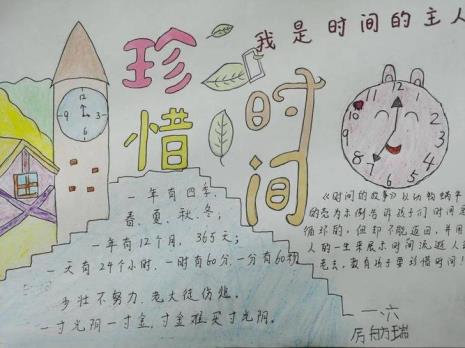 我是时间的主人
珍惜
时间
12
3
6
9
12
1
2
3
4
5
6
7
8
9
10
11
一年有四季,
春、夏、秋、冬;
一年有12个月, 365天;
一天有24个小时,一时有60分,一分有60秒
少壮不努力,老大徒伤悲。
一寸光阴一寸金,寸金难买寸光阴。
《时间的故事》以动物蜗牛
的壳为示例告诉孩子们时间是
循环的,但却不能返回,并用
人的一生来展示时间流逝人会
老去,教育孩子要珍惜时间!
一、六